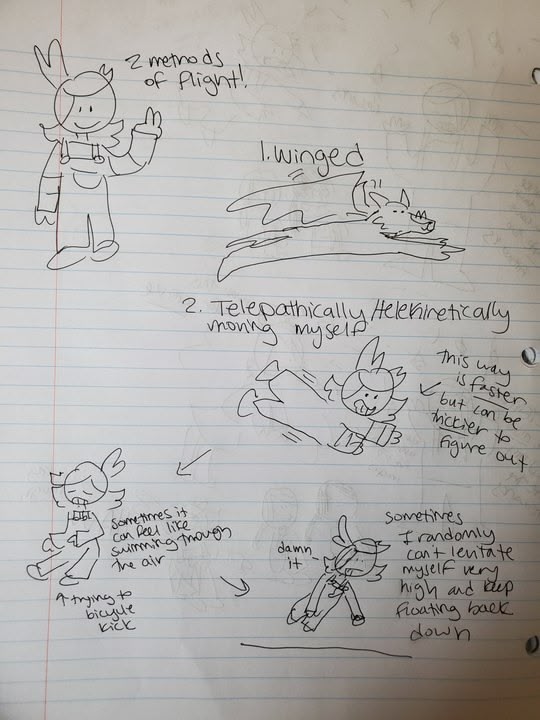 2 methods
of flight!
1. Winged
2. Telepathically/telekinetically
moving myself
This way
is faster
but can be
trickier to
figure out
sometimes it
can feel like
swimming through
the air
↑ trying to
bicycle
kick
damn
it
sometimes
I randomly
can't levitate
myself very
high and keep
floating back
down